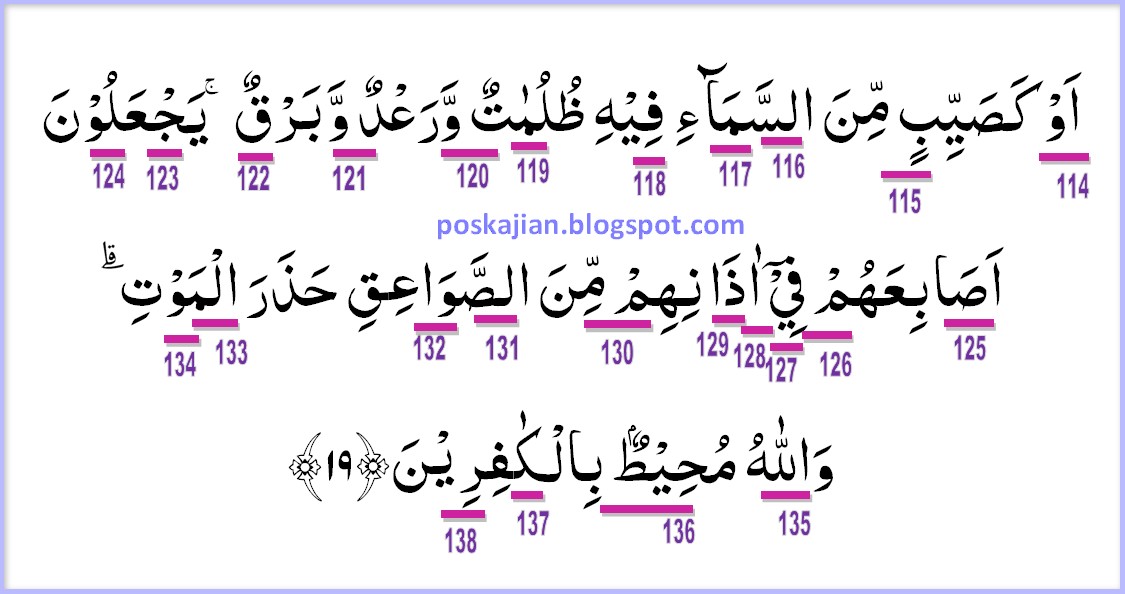 اَوْ كَصَيِّبٍ مِّنَ السَّمَاۤءِ فِيْهِ ظُلُمٰتٌ وَّرَعْدٌ وَّبَرْقٌ ۚ يَجْعَلُوْنَ
124 123 122 121 120 119 118 117 116 115 114
poskajian.blogspot.com
اَصَابِعَهُمْ فِيْٓ اٰذَانِهِمْ مِّنَ الصَّوَاعِقِ حَذَرَ الْمَوْتِ ۗ
134 133 132 131 130 129 128 127 126 125
وَاللّٰهُ مُحِيْطٌۢ بِالْكٰفِرِيْنَ ﴿١٩﴾
138 137 136 135